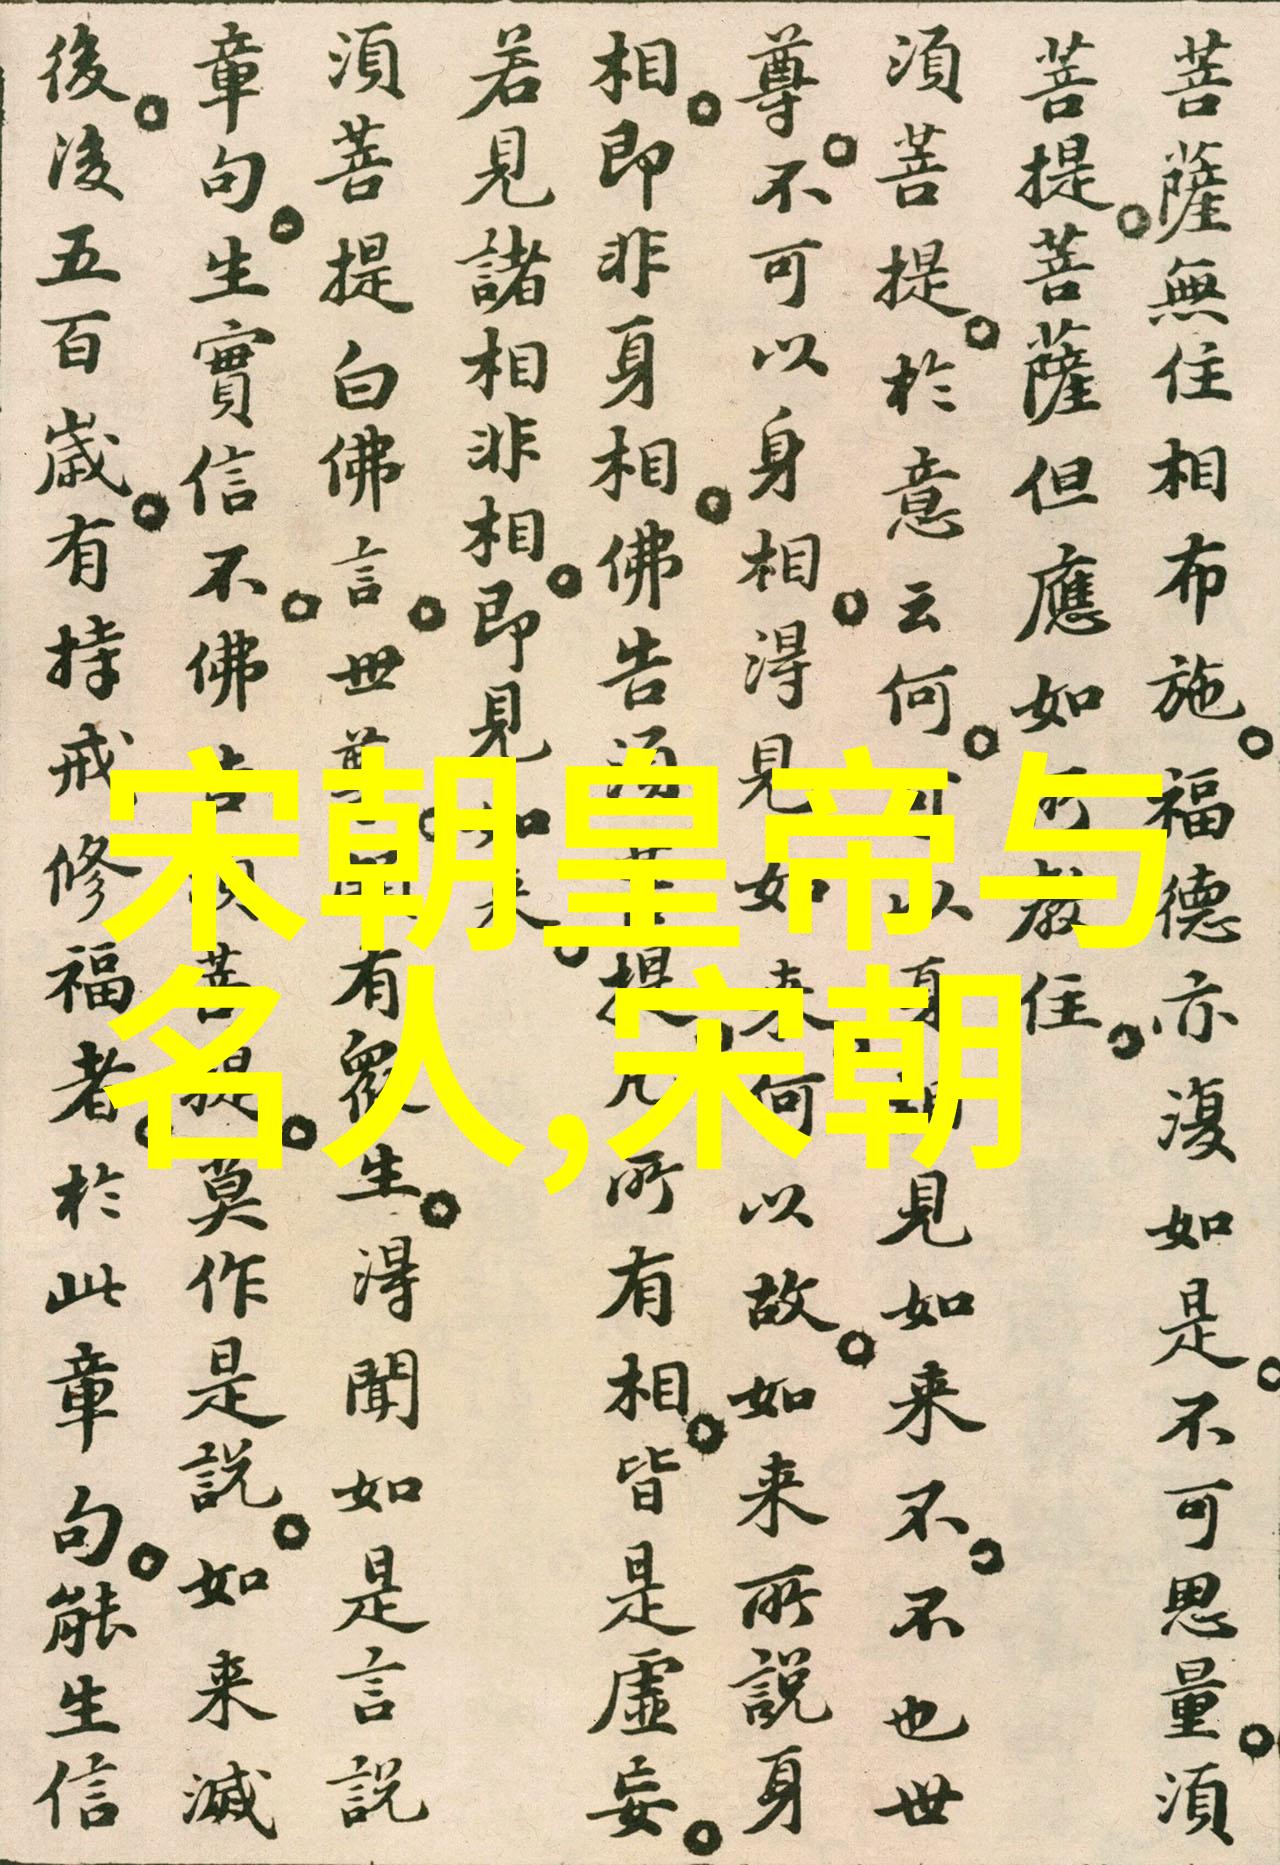 菩薩無住相布施。福德亦復如是。不可思量。須
菩提。菩薩但應如所教住。
須菩提。於意云何。可以身相見如来不。不也世
尊。不可以身相。得見如来。何以故。如来所說身
相。即非身相。佛告須菩提。凡所有相。皆是虛妄。
若見諸相非相。即見如来。
須菩提白佛言。世尊。頗有衆生。得聞如是言說
章句。生實信不。佛告須菩提。莫作是說。如来滅
後。後五百歲。有持戒修福者。於此章句。能生信
宋朝皇帝与
名人,宋朝